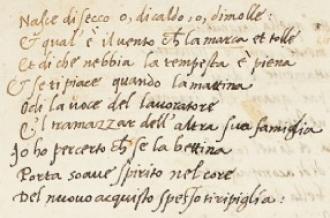 Nasce di secco o, di caldo, o, di molle:
Et qual' è il vento ch̃ la marca et tolle
Et di che nebbia la tempesta è piena
Et se ti piace quando la mattina
Odi la voce del lavoratore
E'l tramazzar dell'altra sua famiglia
Io ho per certo ch̃ se la bettina
Porta soave spirito nel core
Del nuovo acquisto spesso ti ripiglia: